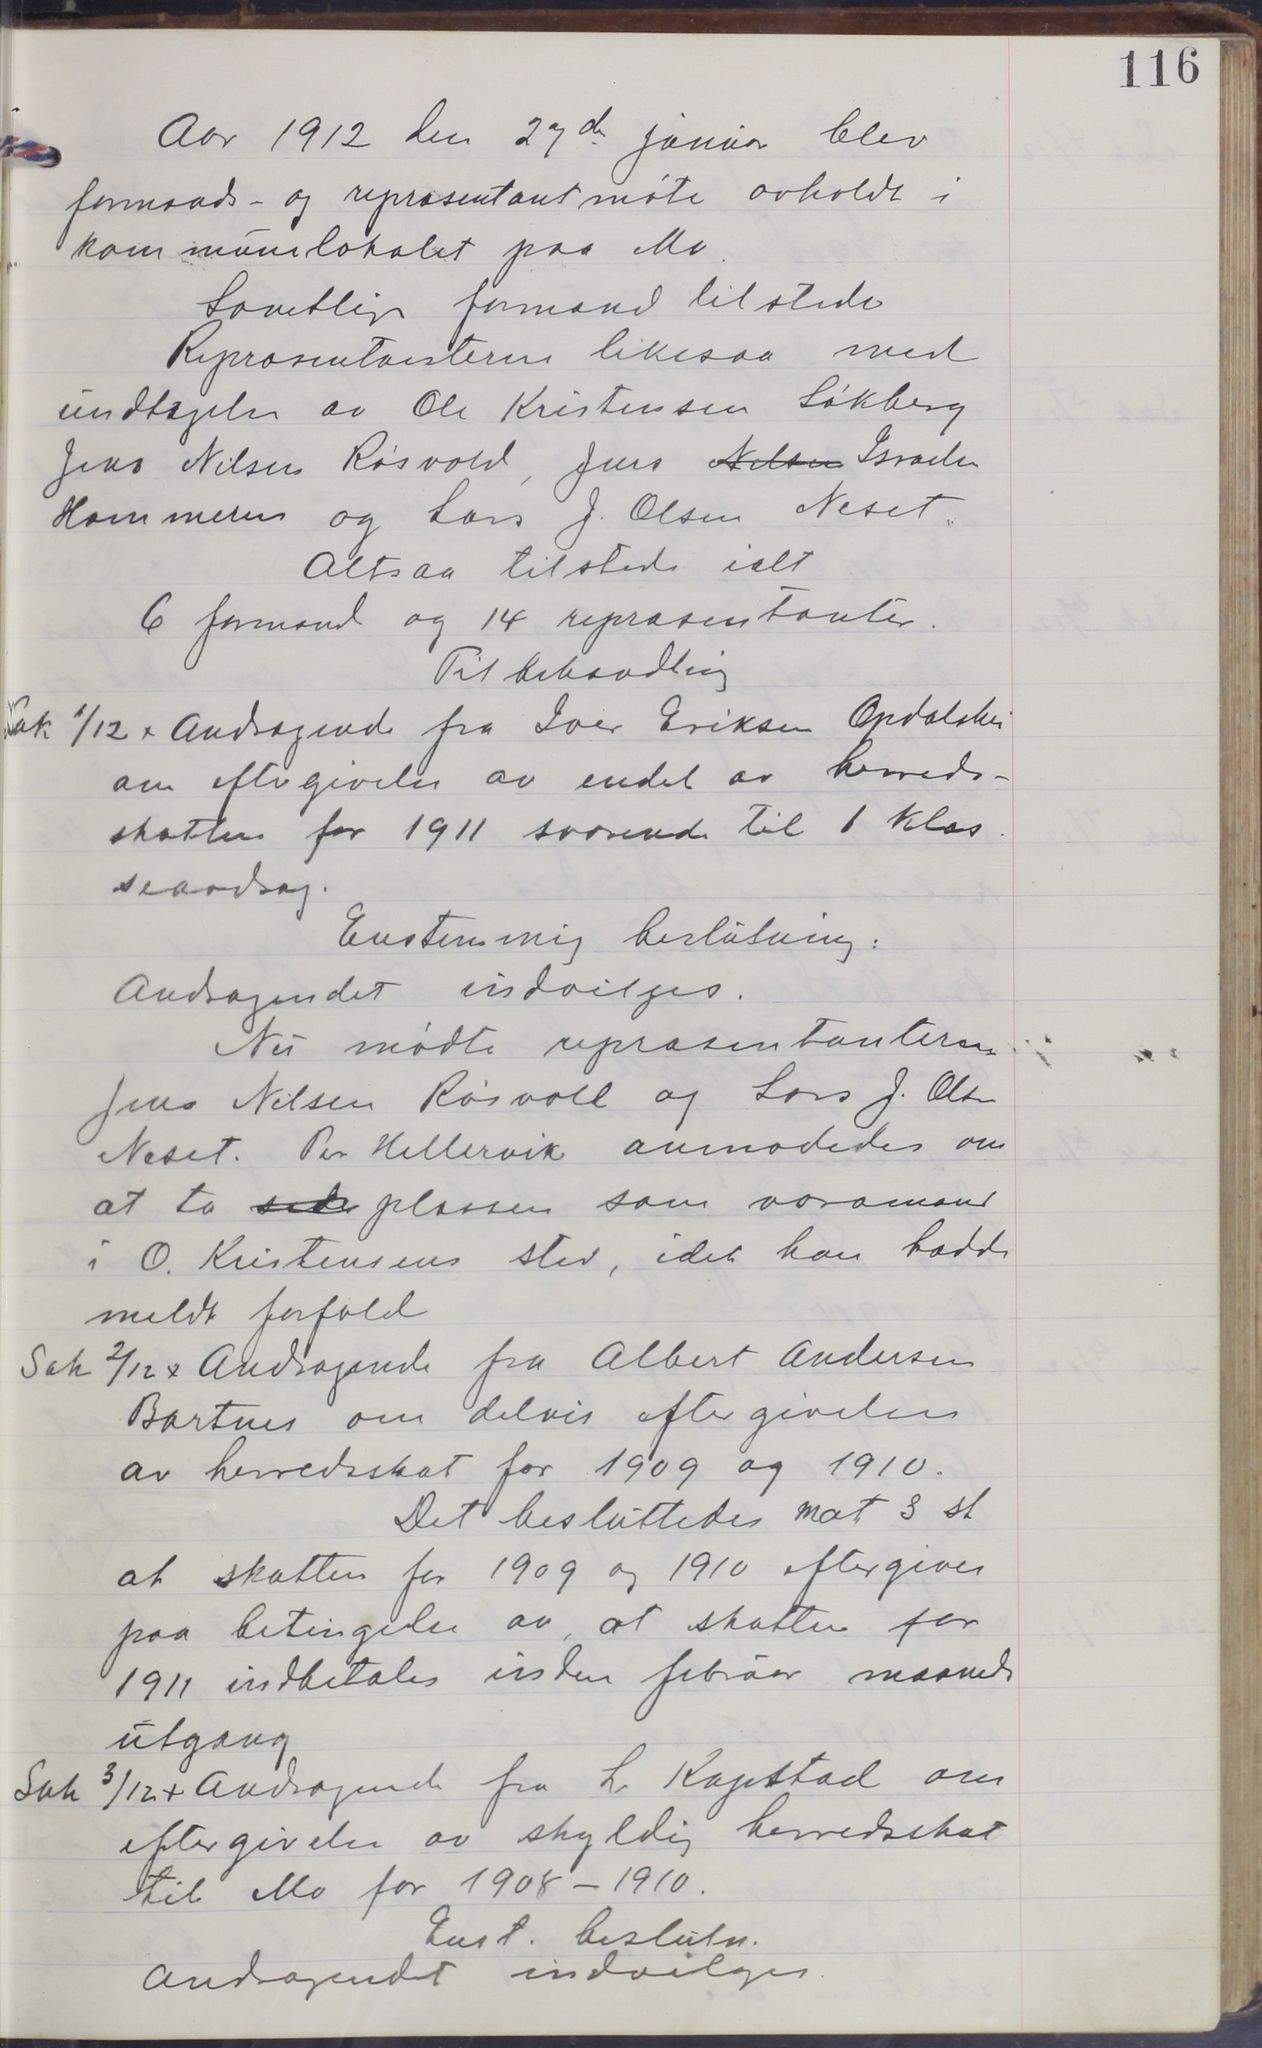 116
Aar 1912 den 27de januar blev
formands- og repræsentantmøte avholdt i
kommunelokalet paa Mo.
Samtlige formænd tilstede
Repræsentanterne likesaa med
undtagelse av Ole Kristensen Løkberg
Jens Nilsen Røsvold, Jens Nilsen Israelsen
Hammeren og Lars J. Olsen Neset.
Altsaa tilstede ialt
6 formænd og 14 repræsentanter.
Til behandling
Sak 1/12 x Andragende fra Iver Eriksen Opdalslei
om eftergivelse av endel av herreds-
skatten for 1911 svarende til 1 klas
seavdrag.
Enstemmig beslutning:
Andragendet indvilges.
Nu mødte repræsentanterne
Jens Nilsen Røsvold og Lars J. Olsen
Neset. Per Hellervik anmodedes om
at ta plassen som varamand
i O. Kristensens sted, idet han hadde
meldt forfald
Sak 2/12 x Andragende fra Albert Andersen
Bartnes om delvis eftergivelse
av herredsskat for 1909 og 1910.
Det besluttedes mot 3 st
at skatten for 1909 og 1910 eftergives
paa betingelse av, at skatten for
1911 indbetales inden februar maaneds
utgang
Sak 3/12 x Andragende fra L. Kapstad om
eftergivelse av skyldig herredsskat
til Mo for 1908 – 1910.
Enst. beslutn.
Andragendet indvilges.